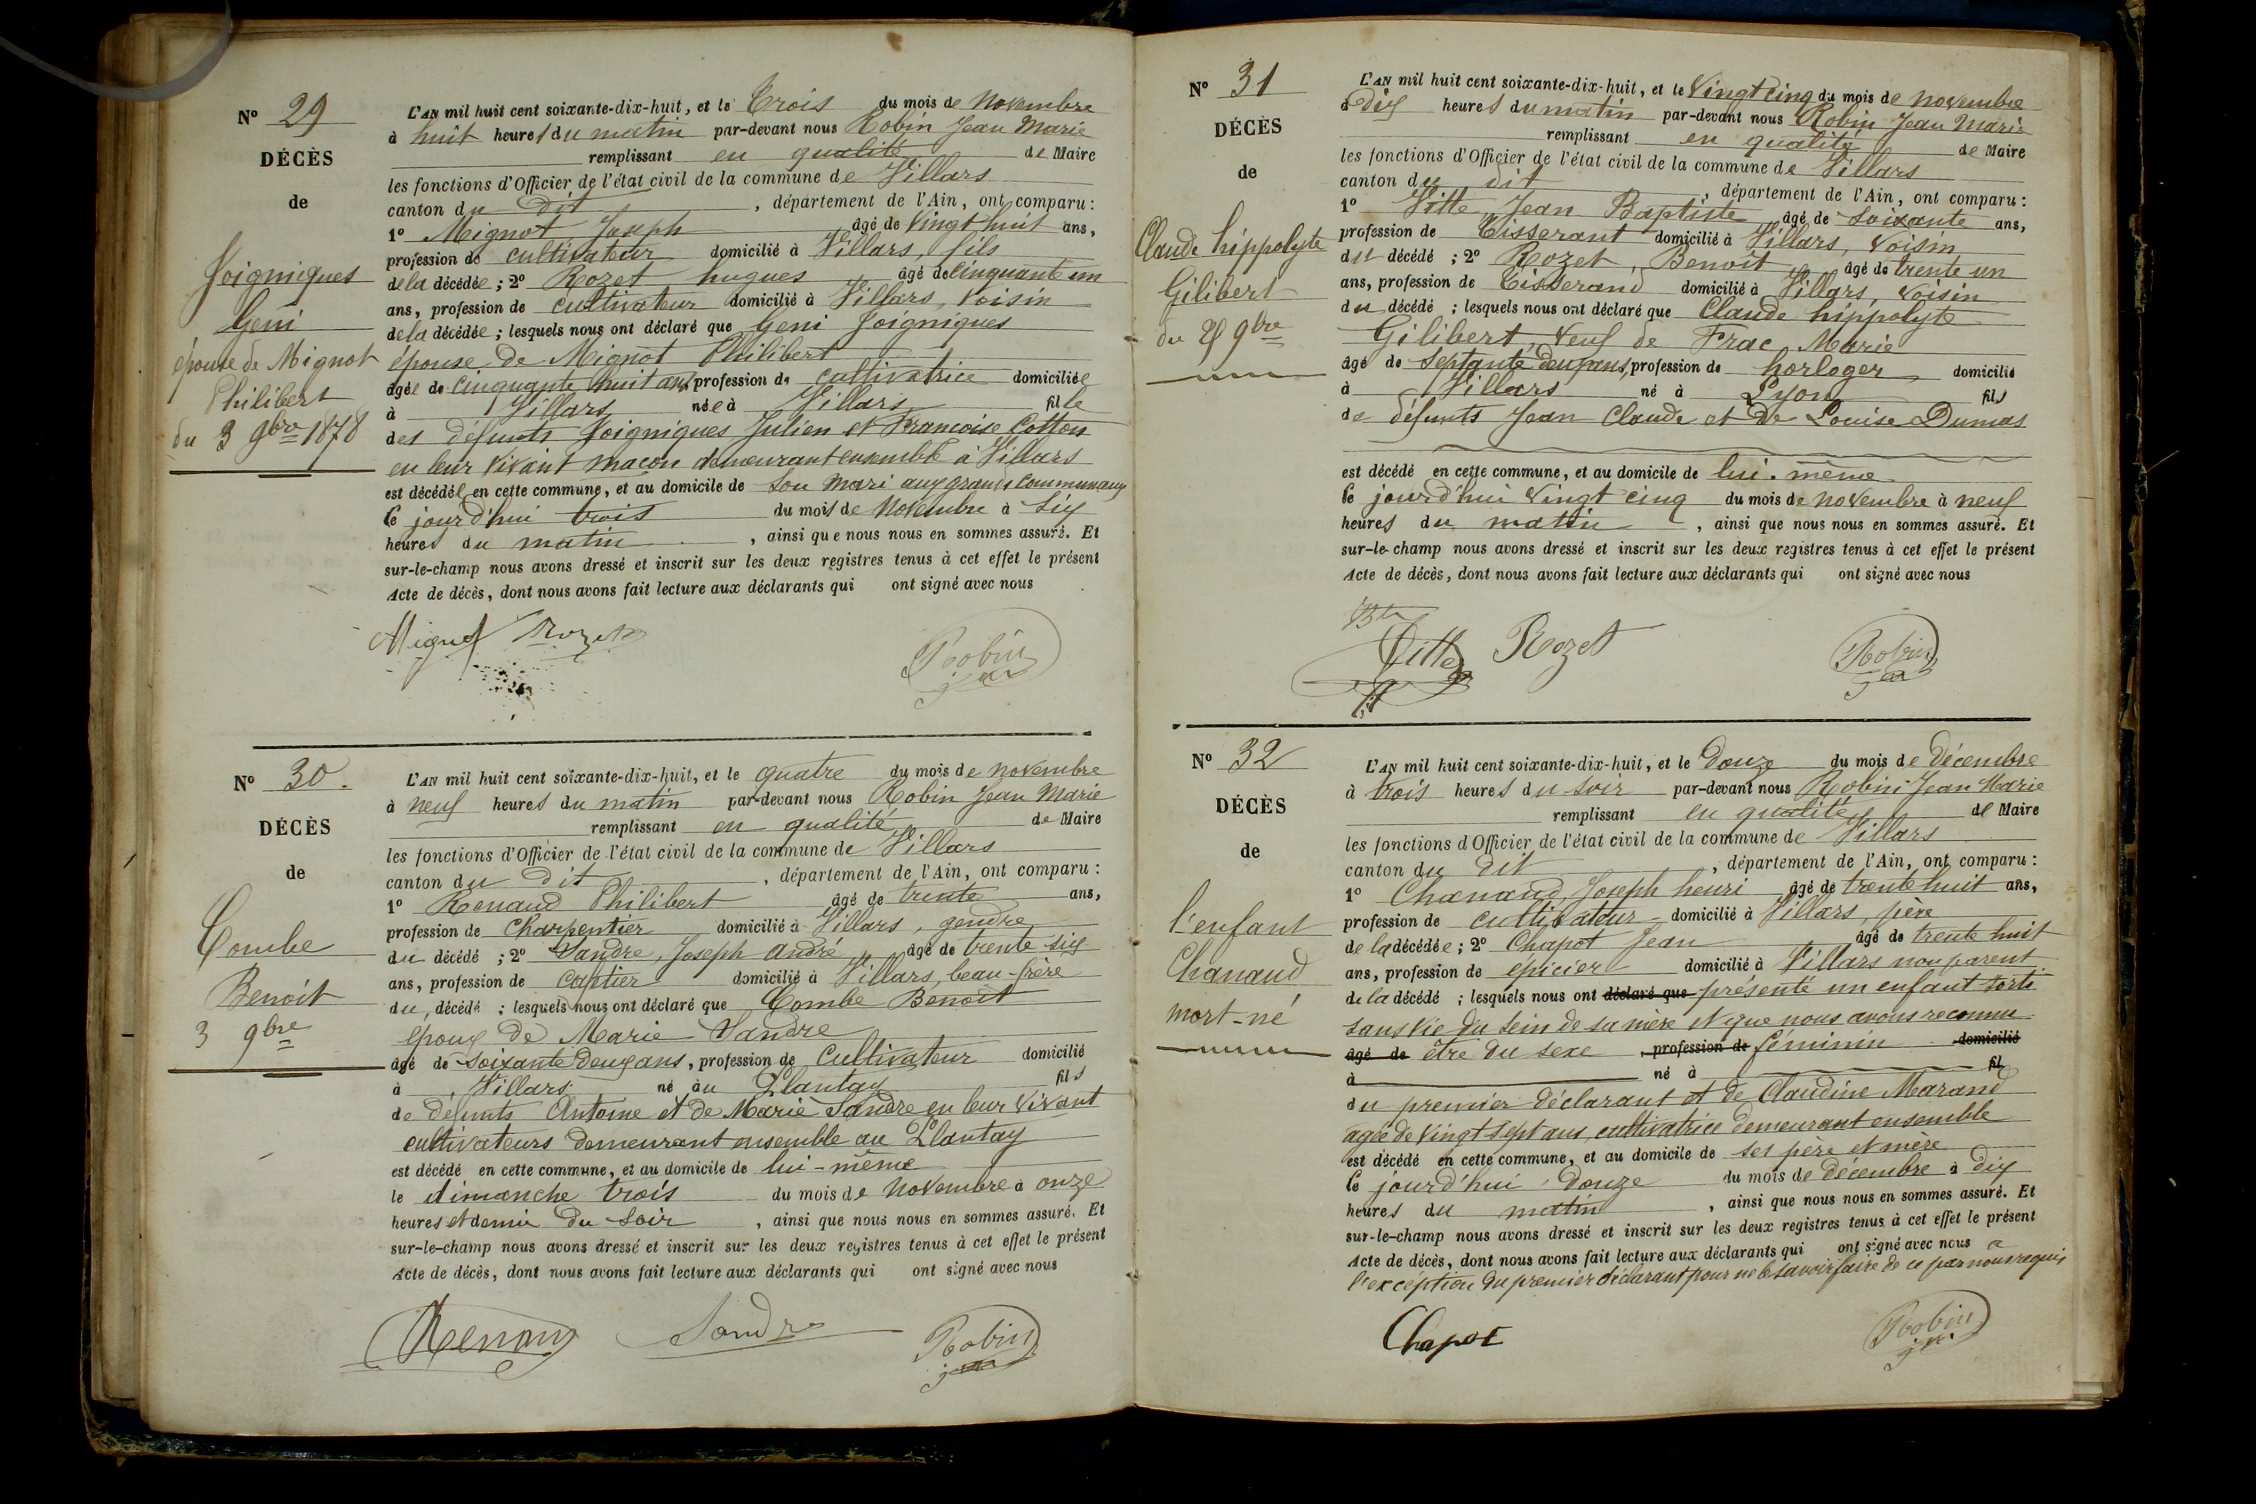 N° 29
DÉCÈS
de
Joigniques
Geni
épouse de Mignot
Philibert
du 3 9bre 1878
L'AN mil huit cent soixante-dix-huit, et le Trois du mois de Novembre
à huit heures du matin par-devant nous Robin Jean Marie
remplissant en qualité de Maire
les fonctions d'Officier de l'état civil de la commune de Villars
canton du dit, département de l'Ain, ont comparu :
1° Mignot Joseph âgé de Vingt huit ans,
profession de cultivateur domicilié à Villars, fils
de la décédée ; 2° Rozet hugues âgé de Cinquante un
ans, profession de cultivateur domicilié à Villars, Voisin
de la décédée ; lesquels nous ont déclaré que Geni Joigniques
épouse de Mignot Philibert
âgée de cinquante huit ans, profession de cultivatrice domiciliée
à Villars née à Villars fille
des défunts Joigniques Julien et Francoise Cotton
en leur vivant maçon demeurant ensemble à Villars
est décédée en cette commune, et au domicile de son mari aux grands communaux
le jourd'hui trois du mois de Novembre à six
heures du matin, ainsi que nous nous en sommes assuré. Et
sur-le-champ nous avons dressé et inscrit sur les deux registres tenus à cet effet le présent
Acte de décès, dont nous avons fait lecture aux déclarants qui ont signé avec nous
Mignot Rozet Robin
N° 30.
DÉCÈS
de
Combe
Benoit
3 9bre
L'AN mil huit cent soixante-dix-huit, et le quatre du mois de novembre
à neuf heures du matin par-devant nous Robin Jean Marie
remplissant en qualité de Maire
les fonctions d'Officier de l'état civil de la commune de Villars
canton du dit, département de l'Ain, ont comparu :
1° Renaud Philibert âgé de trente ans,
profession de Charpentier domicilié à Villars, gendre
du décédé ; 2° Sandre, Joseph André âgé de trente six
ans, profession de domicilié à Villars, beau-frère
du décédé ; lesquels nous ont déclaré que Combe Benoit
époux de Marie Sandre
âgé de soixante deux ans, profession de Cultivateur domicilié
à Villars né au Plantay fils
de défunts Antoine et de Marie Sandre en leur vivant
cultivateurs demeurant ensemble au Plantay
est décédé en cette commune, et au domicile de lui-même
le dimanche trois du mois de Novembre à onze
heures et demie du soir, ainsi que nous nous en sommes assuré. Et
sur-le-champ nous avons dressé et inscrit sur les deux registres tenus à cet effet le présent
Acte de décès, dont nous avons fait lecture aux déclarants qui ont signé avec nous
Renau Sandre Robin
N° 31
DÉCÈS
de
Claude hippolyte
Gilibert
du 25 9bre
L'AN mil huit cent soixante-dix-huit, et le Vingt cinq du mois de novembre
à dix heures du matin par-devant nous Robin Jean Marie
remplissant en qualité de Maire
les fonctions d'Officier de l'état civil de la commune de Villars
canton du dit, département de l'Ain, ont comparu :
1° Vitte Jean Baptiste âgé de soixante ans,
profession de Tisserant domicilié à Villars, Voisin
du décédé ; 2° Rozet, Benoit âgé de trente un
ans, profession de Tisserand domicilié à Villars, voisin
du décédé ; lesquels nous ont déclaré que Claude hippolyte
Gilibert, Veuf de Frac Marie
âgé de septante deux ans, profession de horloger domicilié
à Villars né à Lyon fils
de défunts Jean Claude et de Louise Dumas
est décédé en cette commune, et au domicile de lui-même
le jourd'hui vingt cinq du mois de novembre à neuf
heures du matin, ainsi que nous nous en sommes assuré. Et
sur-le-champ nous avons dressé et inscrit sur les deux registres tenus à cet effet le présent
Acte de décès, dont nous avons fait lecture aux déclarants qui ont signé avec nous
Vitte Rozet Robin
N° 32
DÉCÈS
de
l'enfant
Chanaud
mort-né
L'AN mil huit cent soixante-dix-huit, et le Douze du mois de Décembre
à trois heures du soir par-devant nous Robin Jean Marie
remplissant en qualité de Maire
les fonctions d'Officier de l'état civil de la commune de Villars
canton du dit, département de l'Ain, ont comparu :
1° Chanaud, Joseph henri âgé de trente huit ans,
profession de cultivateur domicilié à Villars, père
de la décédée ; 2° Chapot Jean âgé de trente huit
ans, profession de épicier domicilié à Villars non parent
de la décédé ; lesquels nous ont déclaré que présenté un enfant sorti
sans vie du sein de sa mère et que nous avons reconnu
âgé de être du sexe profession de féminin domicilié
à né à fil
du premier déclarant et de Claudine Marand
agée de Vingt sept ans, cultivatrice demeurant ensemble
est décédé en cette commune, et au domicile de ses père et mère
le jourd'hui Douze du mois de décembre à dix
heures du matin, ainsi que nous nous en sommes assuré. Et
sur-le-champ nous avons dressé et inscrit sur les deux registres tenus à cet effet le présent
Acte de décès, dont nous avons fait lecture aux déclarants qui ont signé avec nous à
l'exception du premier déclarant pour ne le savoir faire de ce par nous requis
Chapot Robin